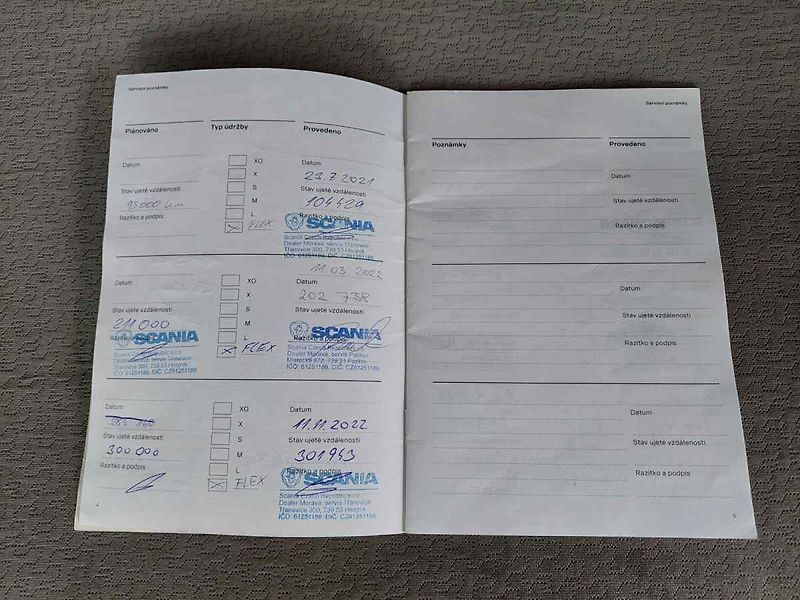 Servisní poznámky
Plánováno
Typ údržby
Provedeno
Datum
Stav ujeté vzdálenosti
93000 km
Razítko a podpis
XO
X
S
M
L
FLEX
Datum
23.7 2021
Stav ujeté vzdálenosti
104429
Razítko a podpis
SCANIA
Scania Czech Republic s.r.o.
Dealer Morava, servis Třanovice
Třanovice 300, 739 53 Hnojník
IČO: 61251186, DIČ: CZ61251186
Datum
Stav ujeté vzdálenosti
211000
Razítko a podpis
SCANIA
Scania Czech Republic s.r.o.
Dealer Morava, servis Třanovice
Třanovice 300, 739 53 Hnojník
IČO: 61251186, DIČ: CZ61251186
XO
X
S
M
L
FLEX
11.03 2022
Datum
202 738
Stav ujeté vzdálenosti
Razítko a podpis
SCANIA
Scania Czech Republic
Dealer Morava, servis Paskov
Místecká 872, 739 21 Paskov
IČO: 61251186, DIČ: CZ61251186
Datum
Stav ujeté vzdálenosti
300 000
Razítko a podpis
XO
X
S
M
L
FLEX
Datum
11.11.2022
Stav ujeté vzdálenosti
301943
Razítko a podpis
SCANIA
Scania Czech Republic s.r.o.
Dealer Morava, servis Třanovice
Třanovice 300, 739 53 Hnojník
IČO: 61251186, DIČ: CZ61251186
4
Servisní poznámky
Poznámky
Provedeno
Datum
Stav ujeté vzdálenosti
Razítko a podpis
Datum
Stav ujeté vzdálenosti
Razítko a podpis
Datum
Stav ujeté vzdálenosti
Razítko a podpis